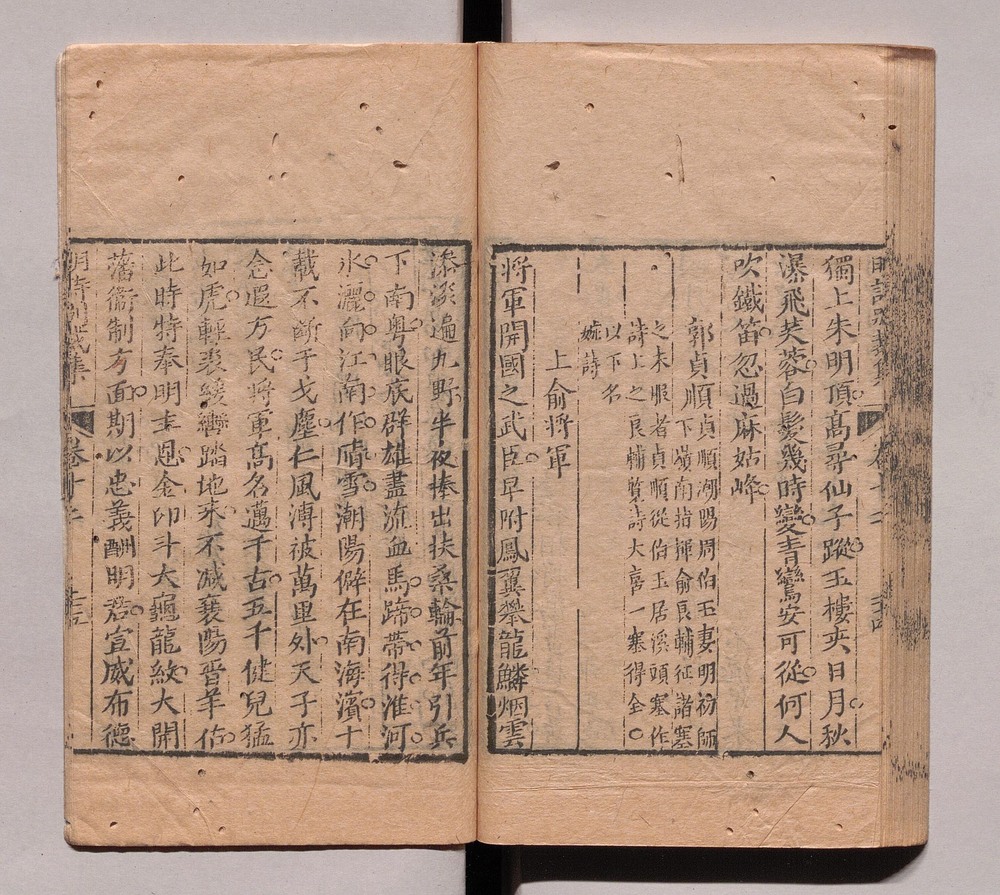 獨上朱明頂高尋仙子蹤玉樓夾日月秋
瀑飛芙蓉白髮幾時變青鸞安可從何人
吹鐵笛忽過麻姑峰
郭貞順
貞順潮陽周伯玉妻明初師
下嶺南指揮俞良輔征諸寨
之未服者貞順從伯玉居溪頭寨作
詩上之良輔覽詩大喜一寨得全○
以下名
媛詩
上俞將軍
將軍開國之武臣早附鳳翼攀龍鱗烟雲
慘淡遍九野半夜捧出扶桑輪前年引兵
下南粤眼底群雄盡流血馬蹄帶得淮河
氷灑向江南作晴雪潮陽僻在南海濱十
載不斷干戈塵仁風溥被萬里外天子亦
念遐方民將軍高名邁千古五千健兒猛
如虎輕裘緩轡踏地來不減襄陽晉羊佑
此時特奉明主恩金印斗大龜龍紋大開
藩衞制方面期以忠義酬明君宣威布德
明詩選義集 卷十二